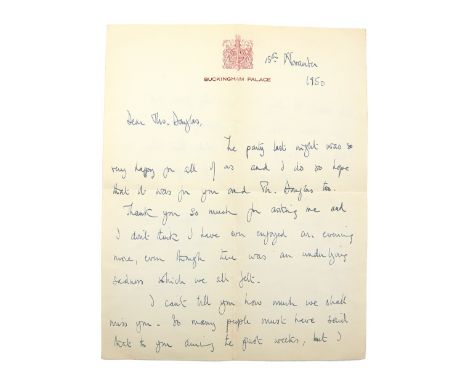 15th November
BUCKINGHAM PALACE
1950
Dear Mrs. Douglas,
The party last night was so
very happy for all of us and I do so hope
that it was for you and Mr. Douglas too.
Thank you so much for asking me and
I don't think I have ever enjoyed an evening
more, even though there was an underlying
sadness which we all felt.
I can't tell you how much we shall
miss you - so many people must have said
that to you during the past weeks, but I